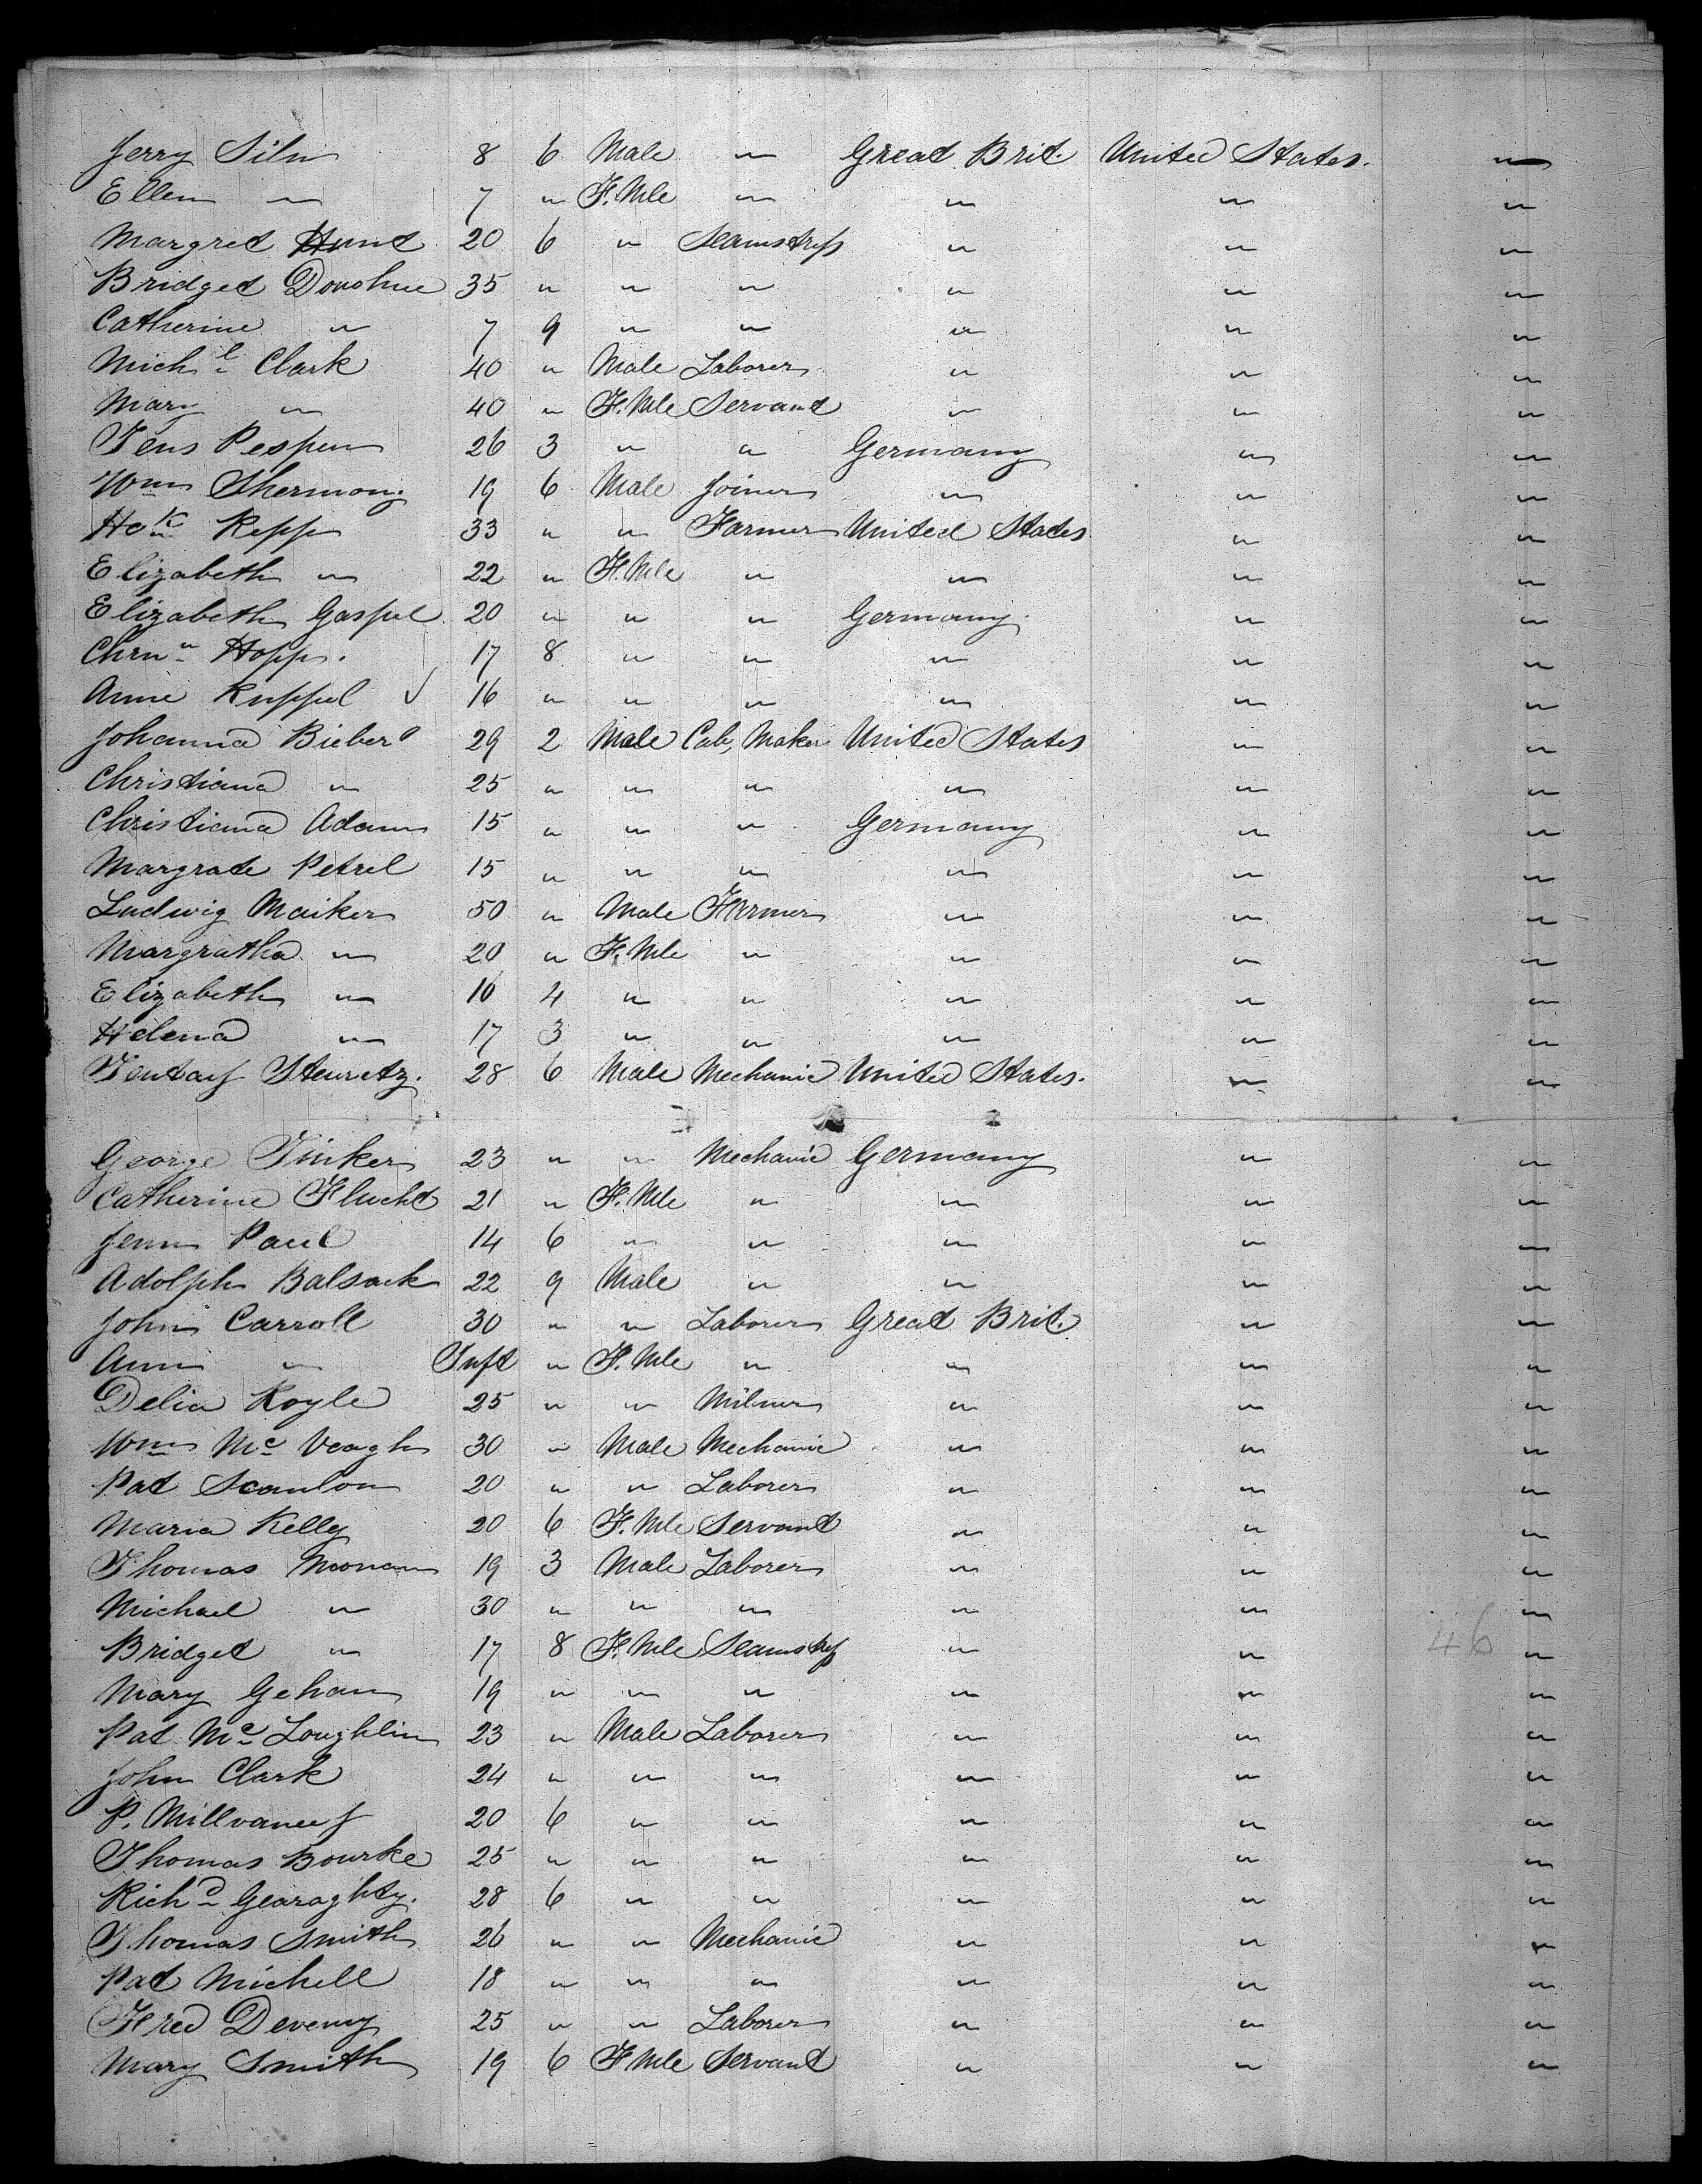 Jerry Siln 8 6 Male " Great Brit. United States. "
Ellen " 7 " F.Mle " " " "
Margret Hunt 20 6 " Seamstress " " "
Bridget Donohue 35 " " " " " "
Catherine " 7 9 " " " " "
Michl Clark 40 " Male Laborer " " "
Mary " 40 " F.Mle Servant " " "
Jens 26 3 " " Germany " "
Wm Shermong 19 6 Male Joiner " " "
Repp 33 " " Farmer United States " "
Elizabeth " 22 " F.Mle " " " "
Elizabeth Gaspel 20 " " " Germany. " "
Chrnn Hopp. 17 8 " " " " "
Anne Ruppel √ 16 " " " " " "
Johanna Bieber 29 2 Male Cab, Maker United States " "
Christiana " 25 " " " " " "
Christiana Adam 15 " " " Germany " "
Margrate Petrel 15 " " " " " "
Ludwig Maiker 50 " Male Farmer " " "
Margratha " 20 " F.Mle " " " "
Elizabeth " 16 4 " " " " "
Helena " 17 3 " " " " "
28 6 Male Mechanic United States. " "
George Tinker 23 " " Mechanic Germany " "
Catherine Flucht 21 " F.Mle " " " "
Jenn Paul 14 6 " " " " "
Adolph Balsack 22 9 Male " " " "
John Carroll 30 " " Laborer Great Brit. " "
Ann " Inft " F.Mle " " " "
Delia Koyle 25 " " Milner " " "
Wm Mc Veagh 30 " Male Mechanic " " "
Pat Scanlon 20 " " Laborer " " "
Maria Kelly 20 6 F.Mle Servant " " "
Thomas Noonan 19 3 Male Laborer " " "
Michael " 30 " " " " " "
Bridget " 17 8 F.Mle Seamstress " " 46 "
Mary Gehan 19 " " " " " "
Pat Mc Loughlin 23 " Male Laborer " " "
John Clark 24 " " " " " "
P. Millvaney 20 6 " " " " "
Thomas Bourke 25 " " " " " "
Richd Gearaghty. 28 6 " " " " "
Thomas Smith 26 " " Mechanic " " "
Pat Michell 18 " " " " " "
Fred Deveny 25 " " Laborer " " "
Mary Smith 19 6 F Mle Servant " " "